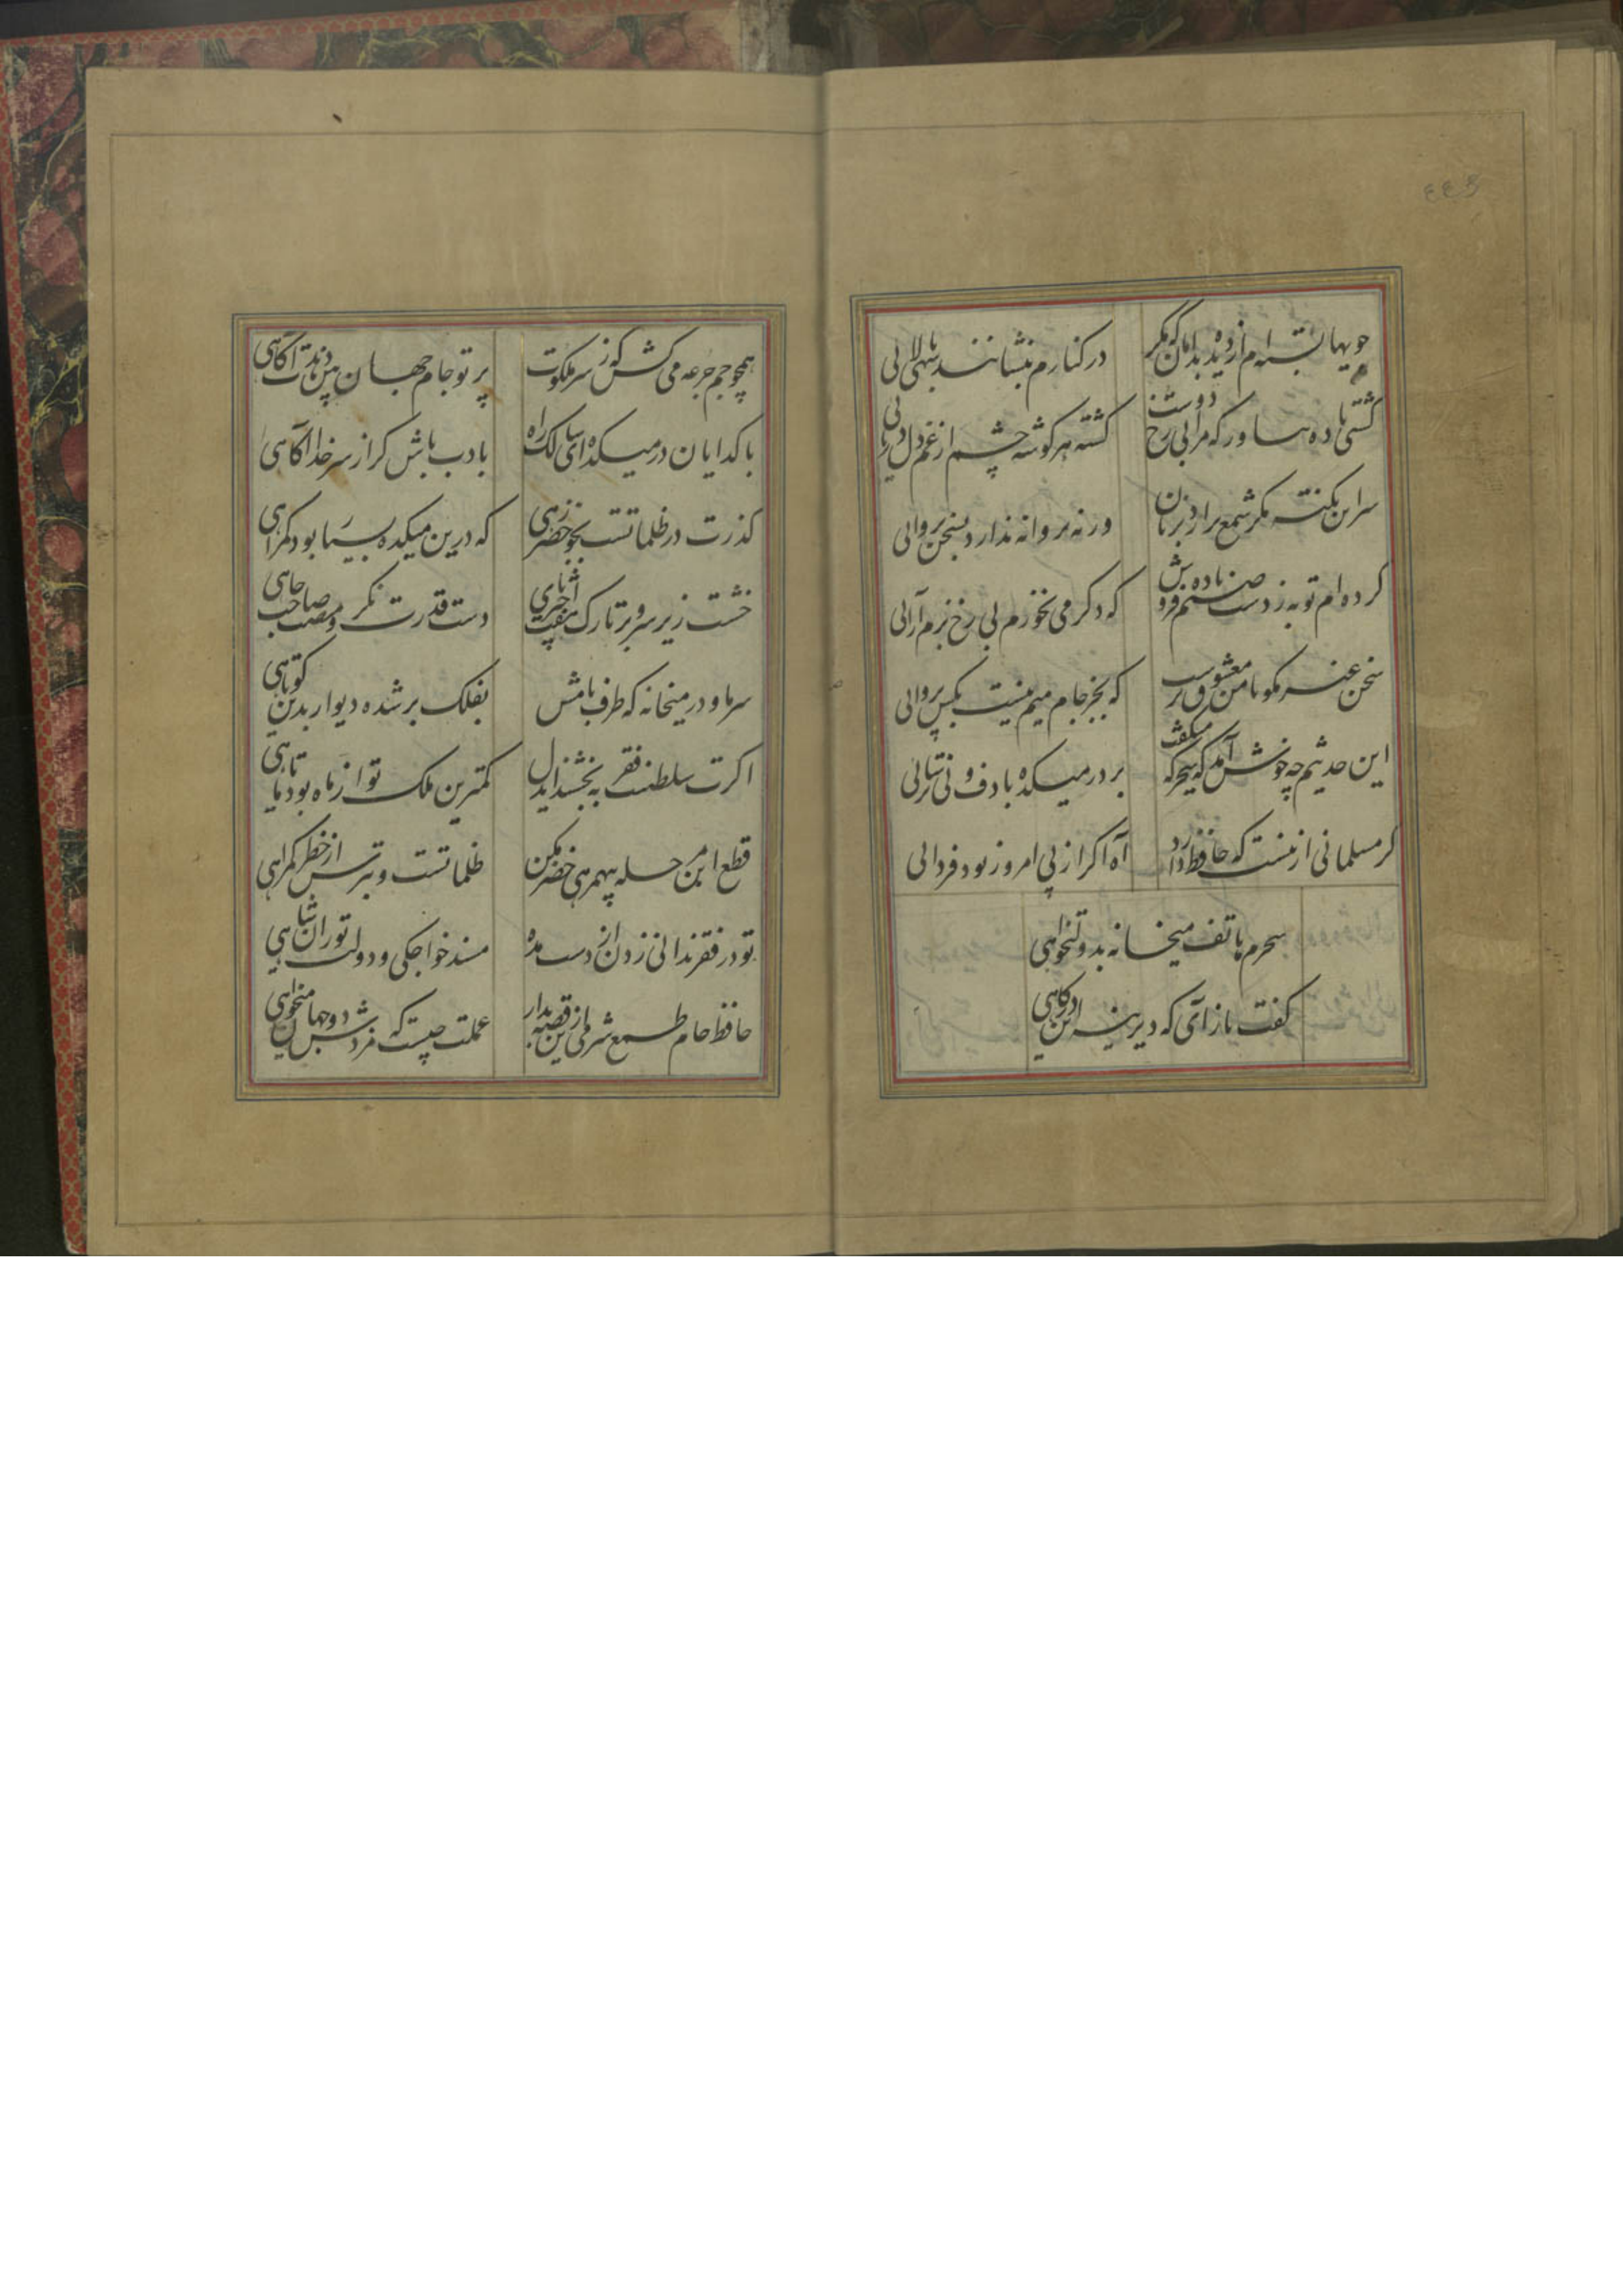 ٤٤٥
جویها بسته‌ام از دیده بدامان که مکر
در کنارم بنشانند سهی بالائی
کشتی باده بیاور که مرا بی رخ دوست
کشته هر کوشه چشم از غم دل دریائی
سر این نکته مکر شمع برآرد بزبان
ورنه پروانه ندارد بسخن پروائی
کرده‌ام توبه بدست صنم باده فروش
که دکر می نخورم بی رخ بزم آرائی
سخن غیر مکو با من معشوق پرست
که بجز جام میم نیست بکس پروائی
این حدیثم چه خوش آمد که سحرکه میکفت
بر در میکده با دف و نی ترسائی
کر مسلمانی ازینست که حافظ دارد
آه اکر از پی امروز بود فردائی
سحرم هاتف میخانه بدولتخواهی
کفت باز آی که دیرینه این درکاهی
همچو جم جرعه می کش که ز سر ملکوت
پرتو جام جهان بین دهدت آکاهی
با کدایان در میکده ای سالک راه
بادب باش کر از سر خدا آکاهی
کذرت در ظلماتست بجو خضر رهی
که درین میکده بسیار بود کمراهی
خشت زیر سر و بر تارک هفت اختر پای
دست قدرت نکر و منصب صاحب جاهی
سر ما و در میخانه که طرف بامش
بفلک بر شده دیوار بدین کوتاهی
اکرت سلطنت فقر ببخشند ایدل
کمترین ملک تو از ماه بود تا ماهی
قطع این مرحله بیهمرهی خضر مکن
ظلماتست و بترس از خطر کمراهی
تو در فقر ندانی زدن از دست مده
مسند خواجکی و دولت تورانشاهی
حافظ خام طمع شرمی ازین قصه بدار
عملت چیست که مزدش دو جهان میخواهی